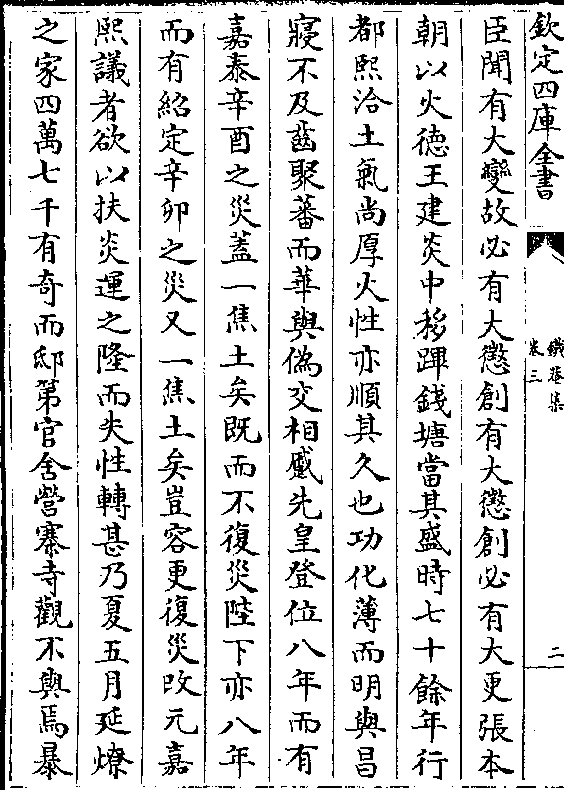 欽定四庫全書
鐵菴集
卷三
二
臣聞有大變故必有大懲創有大懲創必有大更張本
朝以火德王建炎中移蹕錢塘當其盛時七十餘年行
都熙洽土氣尚厚火性亦順其久也功化薄而明與昌
寢不及齒聚蕃而華與偽交相蹙先皇登位八年而有
嘉泰辛酉之災蓋一焦土矣既而不復災陛下亦八年
而有紹定辛卯之災又一焦土矣豈容更復災改元嘉
熙議者欲以扶炎運之隆而失性轉甚乃夏五月延燎
之家四萬七千有奇而邸第官舍營寨寺觀不與焉暴